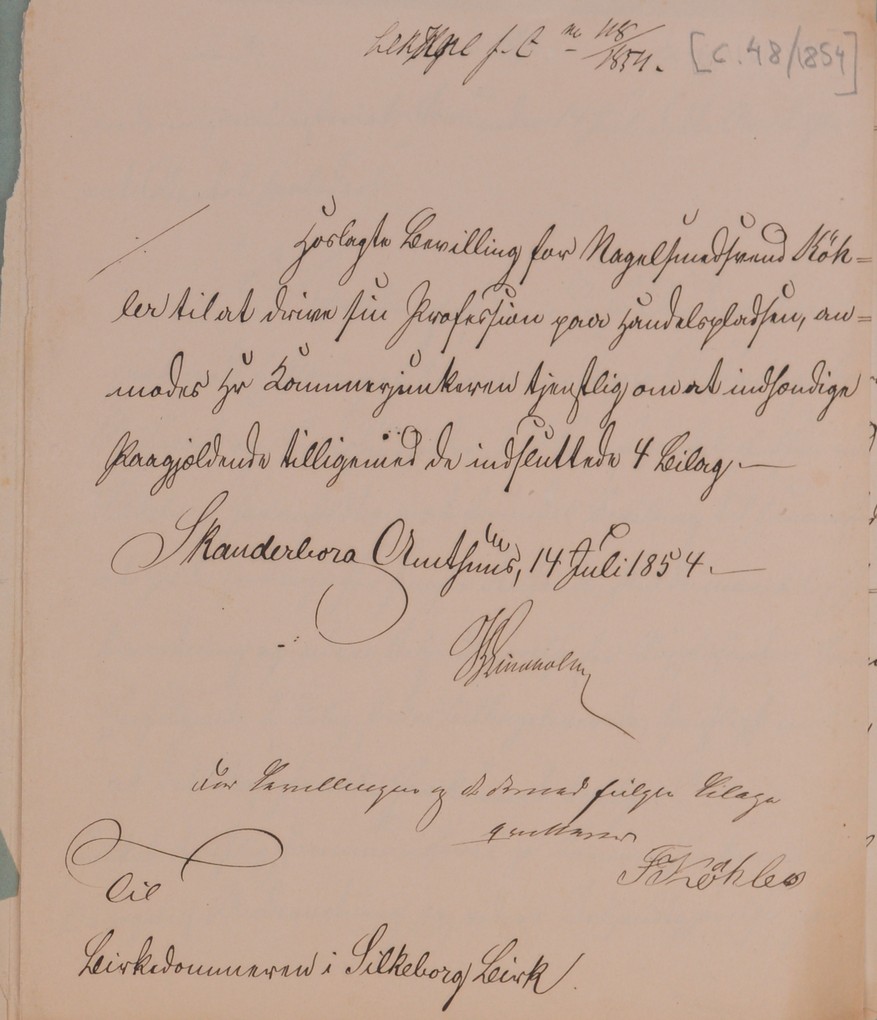 f. C no 48/1854. [C. 48/1854]
Hoslagte Bevilling for Nagelsmedsvend Köh=
ler til at drive sin Profession paa Handelspladsen, an=
modes Hr Kammerjunkeren tjenstlig om at indhændige
Paagjældende tilligemed de indsluttede 4 Bilag.—
Skanderborg Amthuus, 14 Juli 1854.—
For Bevillingen og de dermed fulgte Bilage
qvitteres
F Köhler
Til
Birkedommeren i Silkeborg Birk.